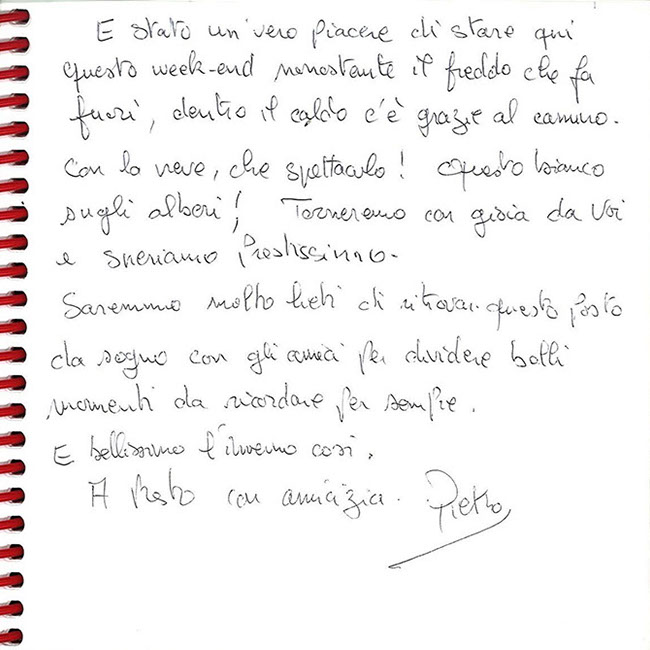 E stato un'vero piacere di stare qui
questo week-end nonostante il freddo che fa
fuori, dentro il caldo c'è grazie al camino.
Con la neve, che spettaculo! questo bianco
sugli alberi! Torneremo con gioia da voi
e speriamo Prestissimo.
Saremmo molto lieti di ritrovar questo posto
da sogno con gli amici per dividere belli
momenti da ricordare per sempre.
E bellissimo l'inverno così.
A presto con amicizia. Pietro